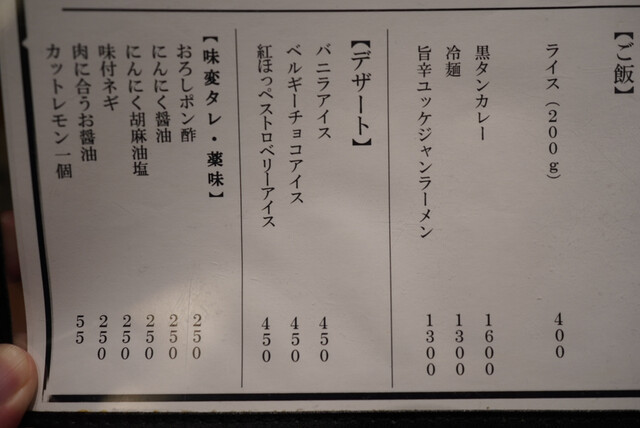 【ご飯】
ライス(200g) 400
黒タンカレー 1600
冷麺 1300
旨辛ユッケジャンラーメン 1300
【デザート】
バニラアイス 450
ベルギーチョコアイス 450
紅ほっぺストロベリーアイス 450
【味変タレ・薬味】
おろしポン酢 250
にんにく醤油 250
にんにく胡麻油塩 250
味付ネギ 250
肉に合うお醤油 250
カットレモン一個 55